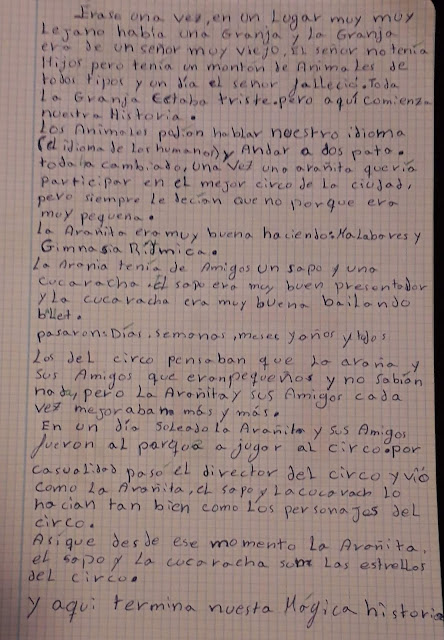 Érase una vez, en un Lugar muy muy
Lejano había una Granja y La Granja
era de un señor muy viejo, El señor no tenía
Hijos pero tenía un montón de Animales de
todos tipos y un día el señor falleció. Toda
La Granja Estaba triste. pero aquí comienza
nuestra Historia.
Los Animales podíon hablar nuestro idioma
(el idioma de los humanos) y Andar a dos pata.
todo la cambiado, una vez una arañita quería
participar en el mejor circo de la ciudad,
pero siempre le decían que no porque era
muy pequeña.
La Arañita era muy buena haciendo: Malabares y
Gimnasia Rítmica.
La Arania tenía de Amigos un sapo y una
cucaracha. El sapo era muy buen presentador
y La cucaracha era muy buena bailando
ballet.
pasaron: Días, semonas, meses y años y todos
Los del circo pensaban que La araña y
sus Amigos que eran pequeños y no sabían
nada, pero La Arañita y sus Amigos cada
vez mejoraban más y más.
En un día soleado La Arañita y sus Amigos
fueron al parque a jugar al circo. por
casualidad pasó el director del circo y vió
como La Arañita, el sapo y La cucarach Lo
hacían tan bien como Los personajes del
circo.
Así que desde ese momento La Arañita,
el sapo y La cucaracha son Las estrellas
del circo.
y aquí termina nuesta Mágica historia